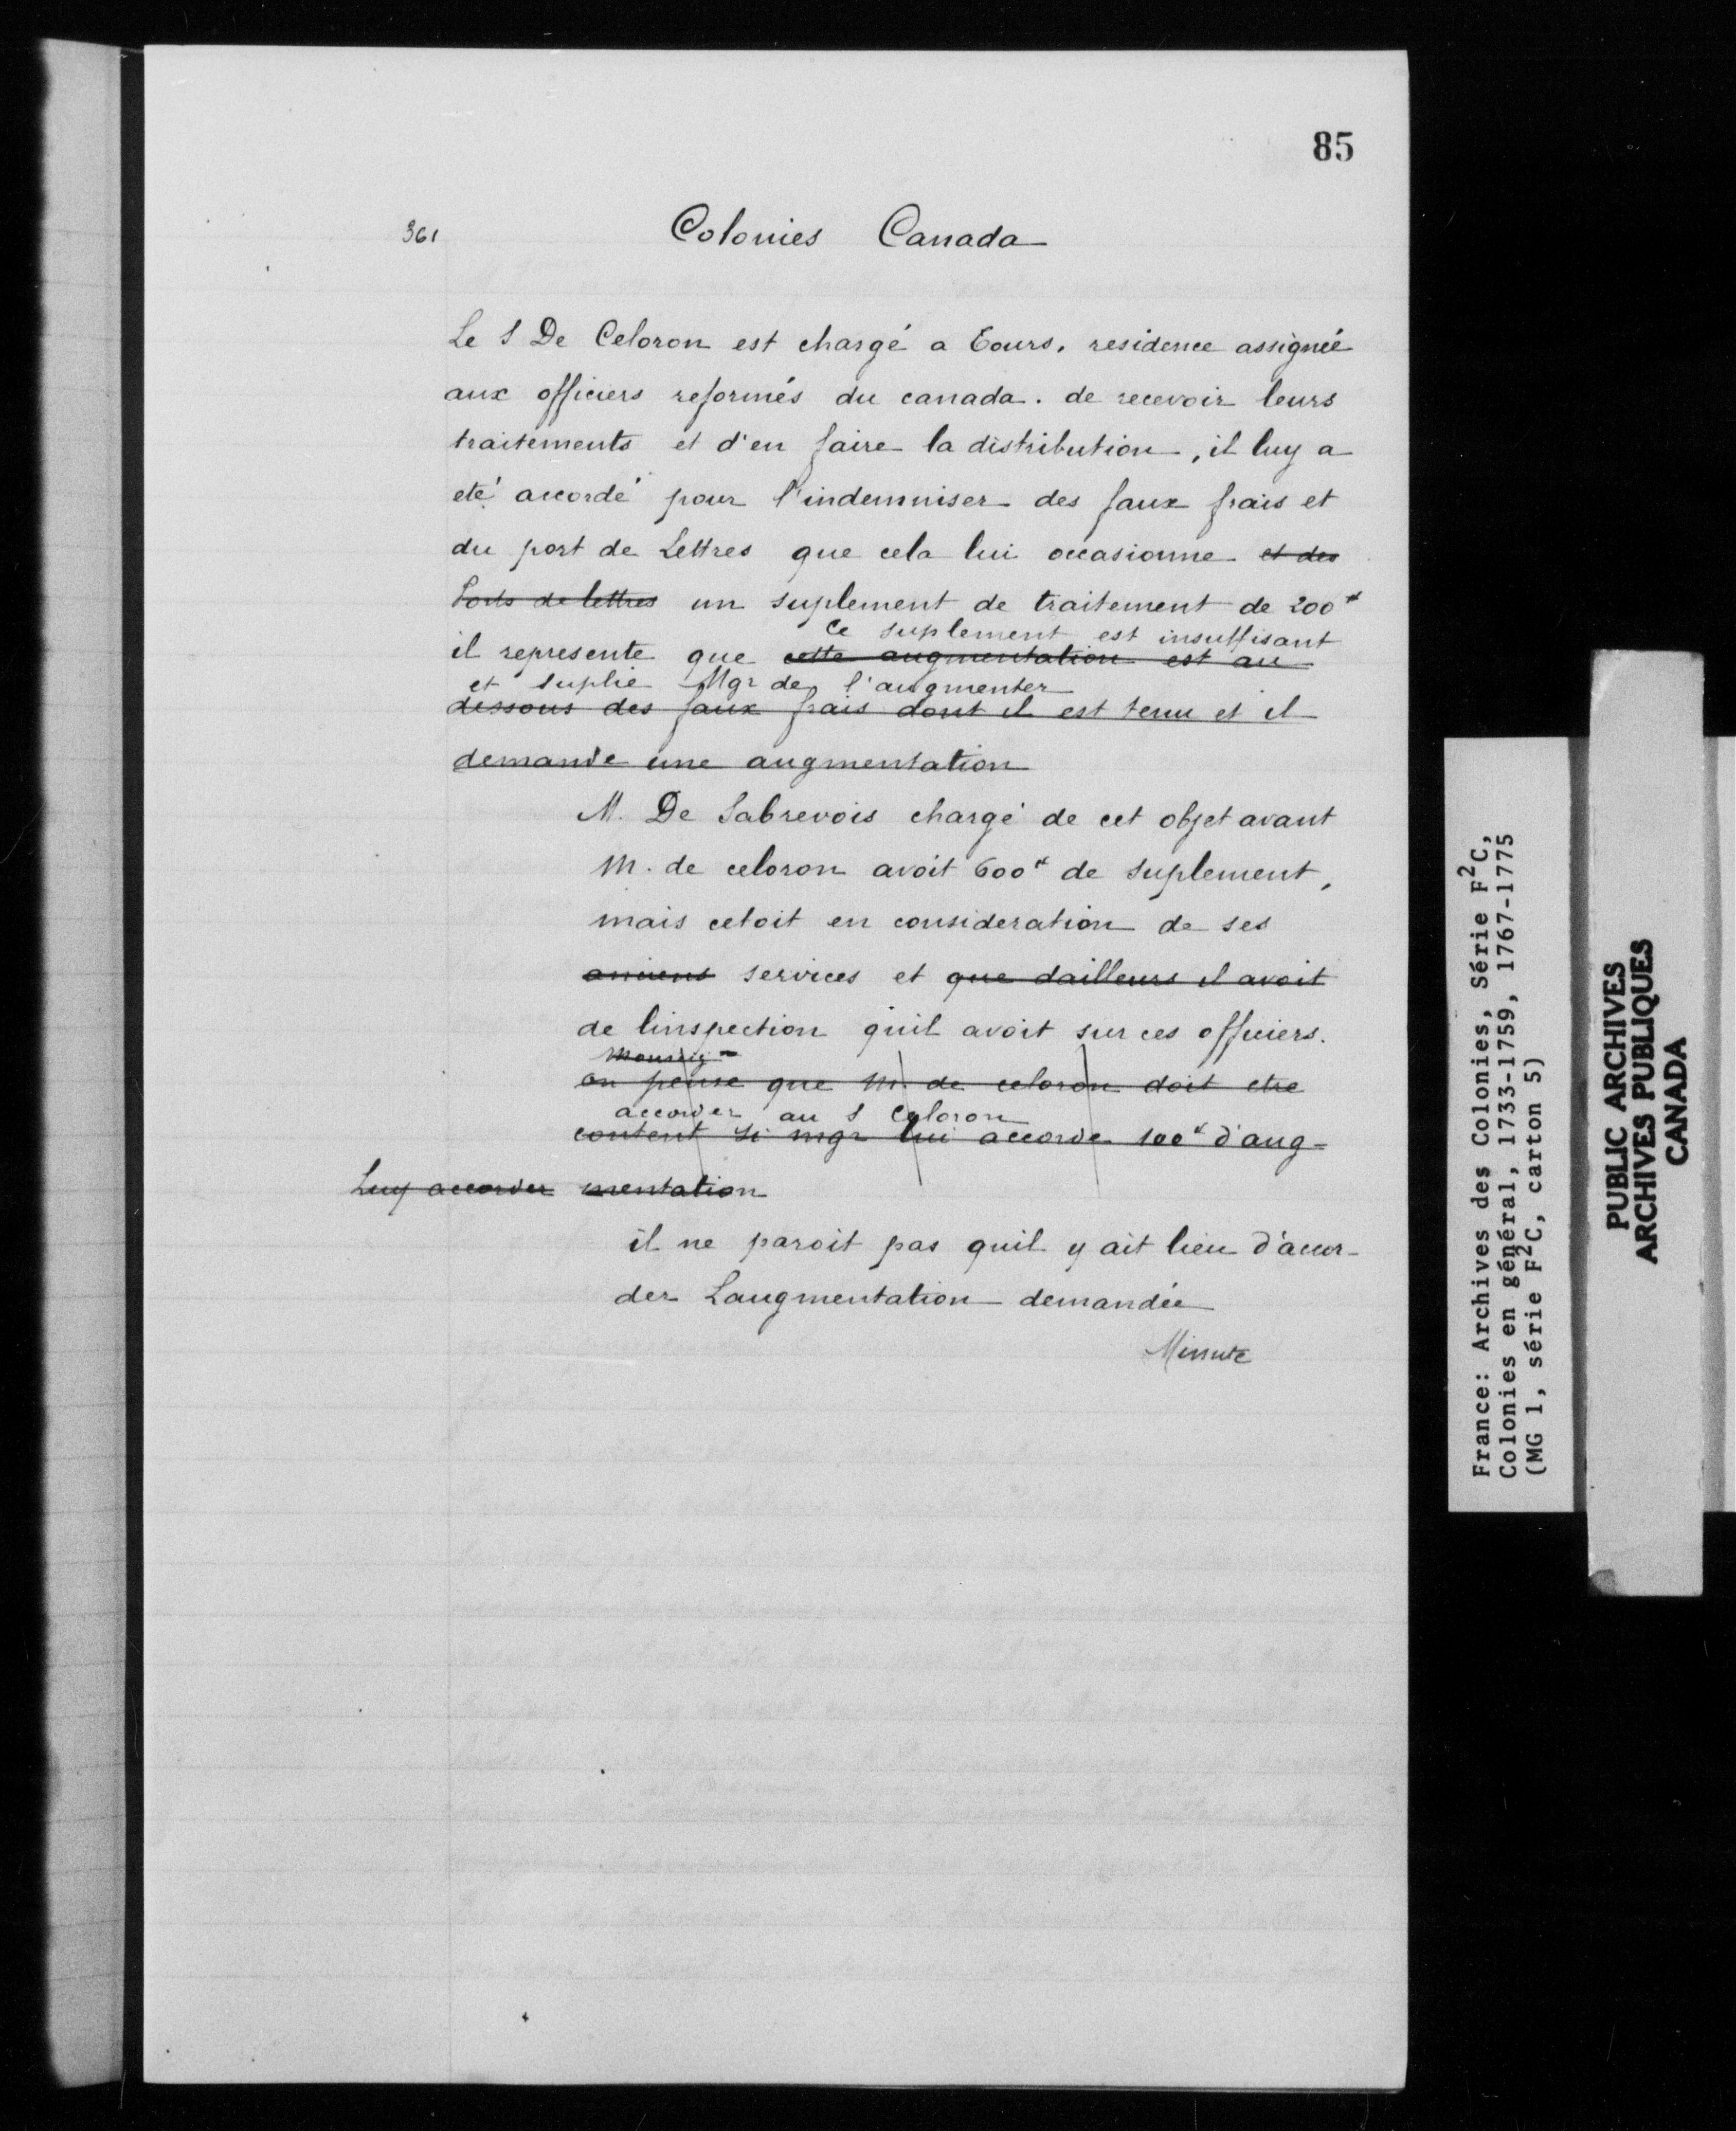 85
361 Colonies Canada
Le S De Celoron est chargé a Tours, residence assignée
aux officiers reformés du canada. de recevoir leurs
traitements et d'en faire la distribution, il luy a
eté accordé pour l'indemniser des faux frais et
du port de Lettres que cela lui occasionne et des
Ports de lettres un suplement de traitement de 200#
Ce suplement est insuffisant
il represente que cette augmentation est au
et suplie Mgr de l'augmenter
dessous des faux frais dont il est tenu et il
demande une augmentation
M. De Sabrevois chargé de cet objet avant
M. de celoron avoit 600# de suplement,
mais cetoit en consideration de ses
anciens services et que dailleurs il avoit
de linspection quil avoit sur ces officiers.
Monsig-
on pense que M. de celoron doit etre
accorder au S Celoron
content si mgr lui accorde 100# d'aug-
Luy accorder mentation
il ne paroit pas quil y ait lieu d'accor-
der Laugmentation demandée
Minute
France: Archives des Colonies, Série F²C,
Colonies en général, 1733-1759, 1767-1775
(MG 1, série F²C, carton 5)
PUBLIC ARCHIVES
ARCHIVES PUBLIQUES
CANADA